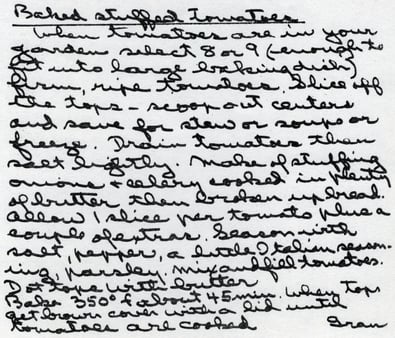 Baked stuffed tomatoes
When tomatoes are in your
garden select 8 or 9 (enough to
fit into large baking dish)
firm, ripe tomatoes. Slice off
the tops - scoop out centers
and save for stew or soups or
freeze. Drain tomatoes then
salt lightly. Make of stuffing
onions + celery cooked in plenty
of butter then broken up bread.
Allow 1 slice per tomato plus a
couple of extras. Season with
salt, pepper, a little Italian season-
ing, parsley. Mix and fill tomatoes.
Dot tops with butter
Bake 350° for about 45 min. When tops
get brown cover with a lid until
tomatoes are cooked Gran